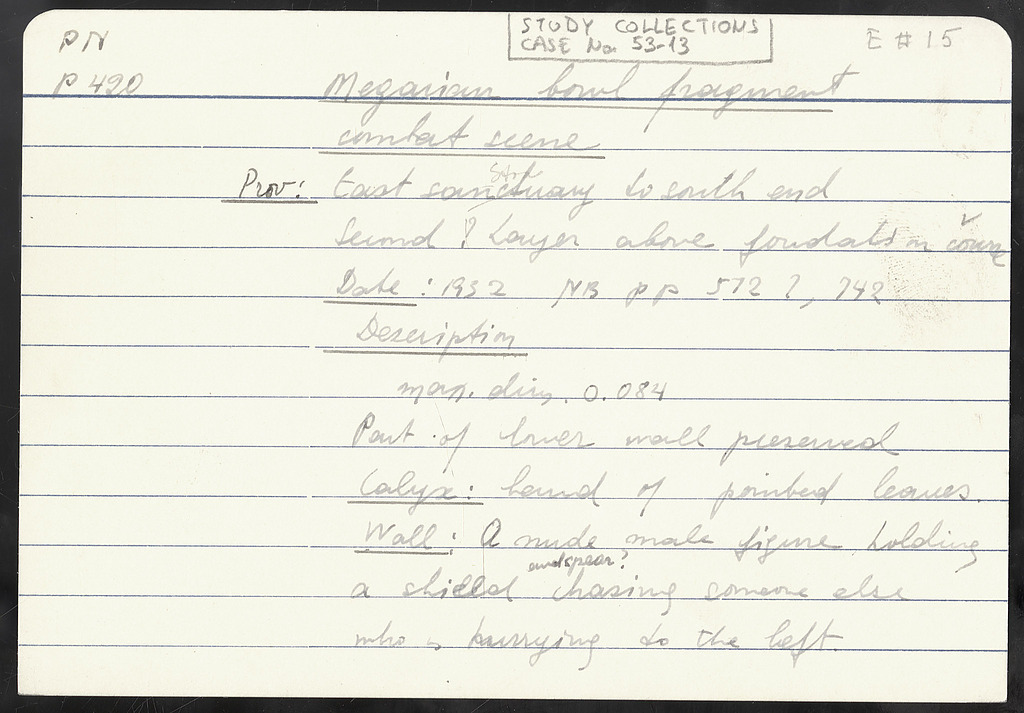 PN
STUDY COLLECTIONS
CASE No. 53-13
E # 15
P 420
Megarian bowl fragment
combat scene
Prov: East sanctuary to south end
Stoa
Second ? Layer above foudation course
Date : 1932 NB pp 572 ?, 742
Description
max. dim. 0.084
Part of lower wall preserved
Calyx: band of pointed leaves.
Wall: A nude male figure holding
and spear?
a shield chasing someone else
who is hurrying to the left.